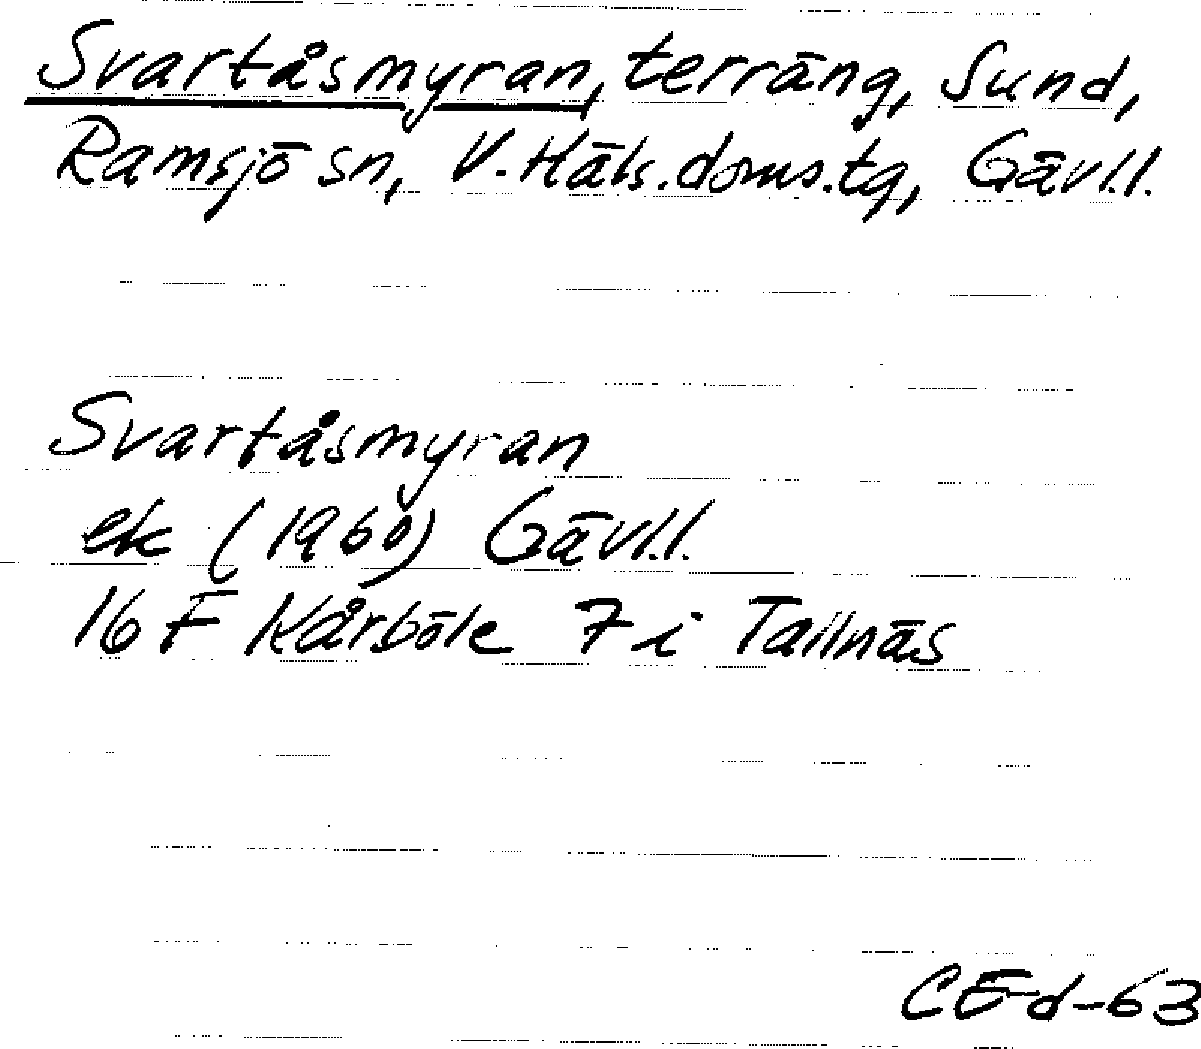 Svartåsmyran, terräng, Sund,
Ramsjö sn, V. Häls. doms.tg, Gävl.l.
Svartåsmyran
ek (1960) Gävl.l.
16 F Kårböle 7 i Tallnäs
CEd-63